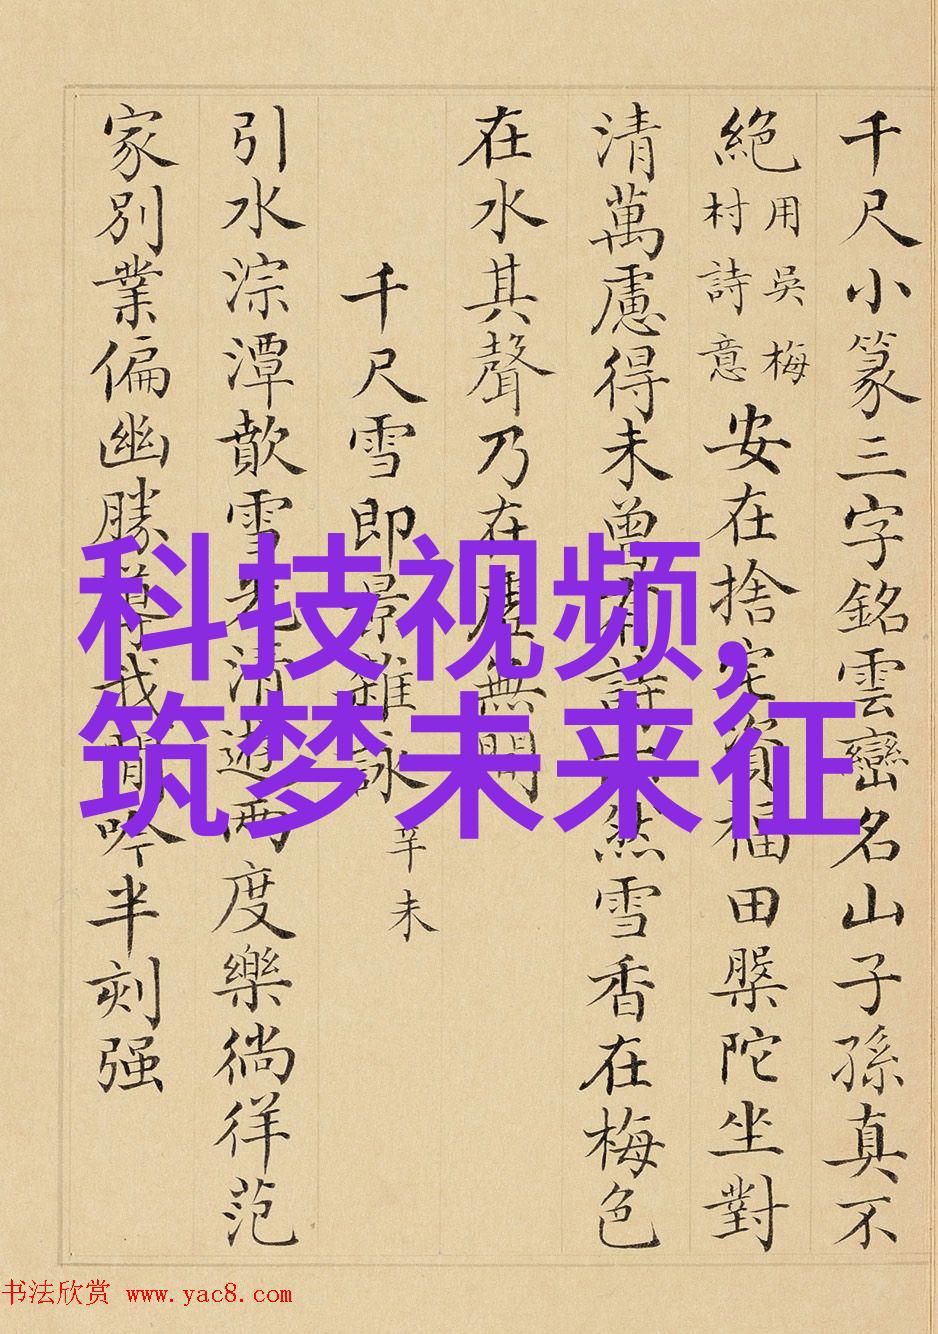 千尺小篆三字銘雲巒名山子孫真不
絕用吳梅村詩意安在捨宅資福田槃陀坐對
清萬慮得未曾有詩然雪香在梅色
在水其聲乃在虛無間
千尺雪即景雜詠辛未
引水淙潭歕雪光清遊兩度樂徜徉范
家別業偏幽勝導我閒吟半刻强
科技视频，
筑梦未来征
书法欣赏 www.yac8.com